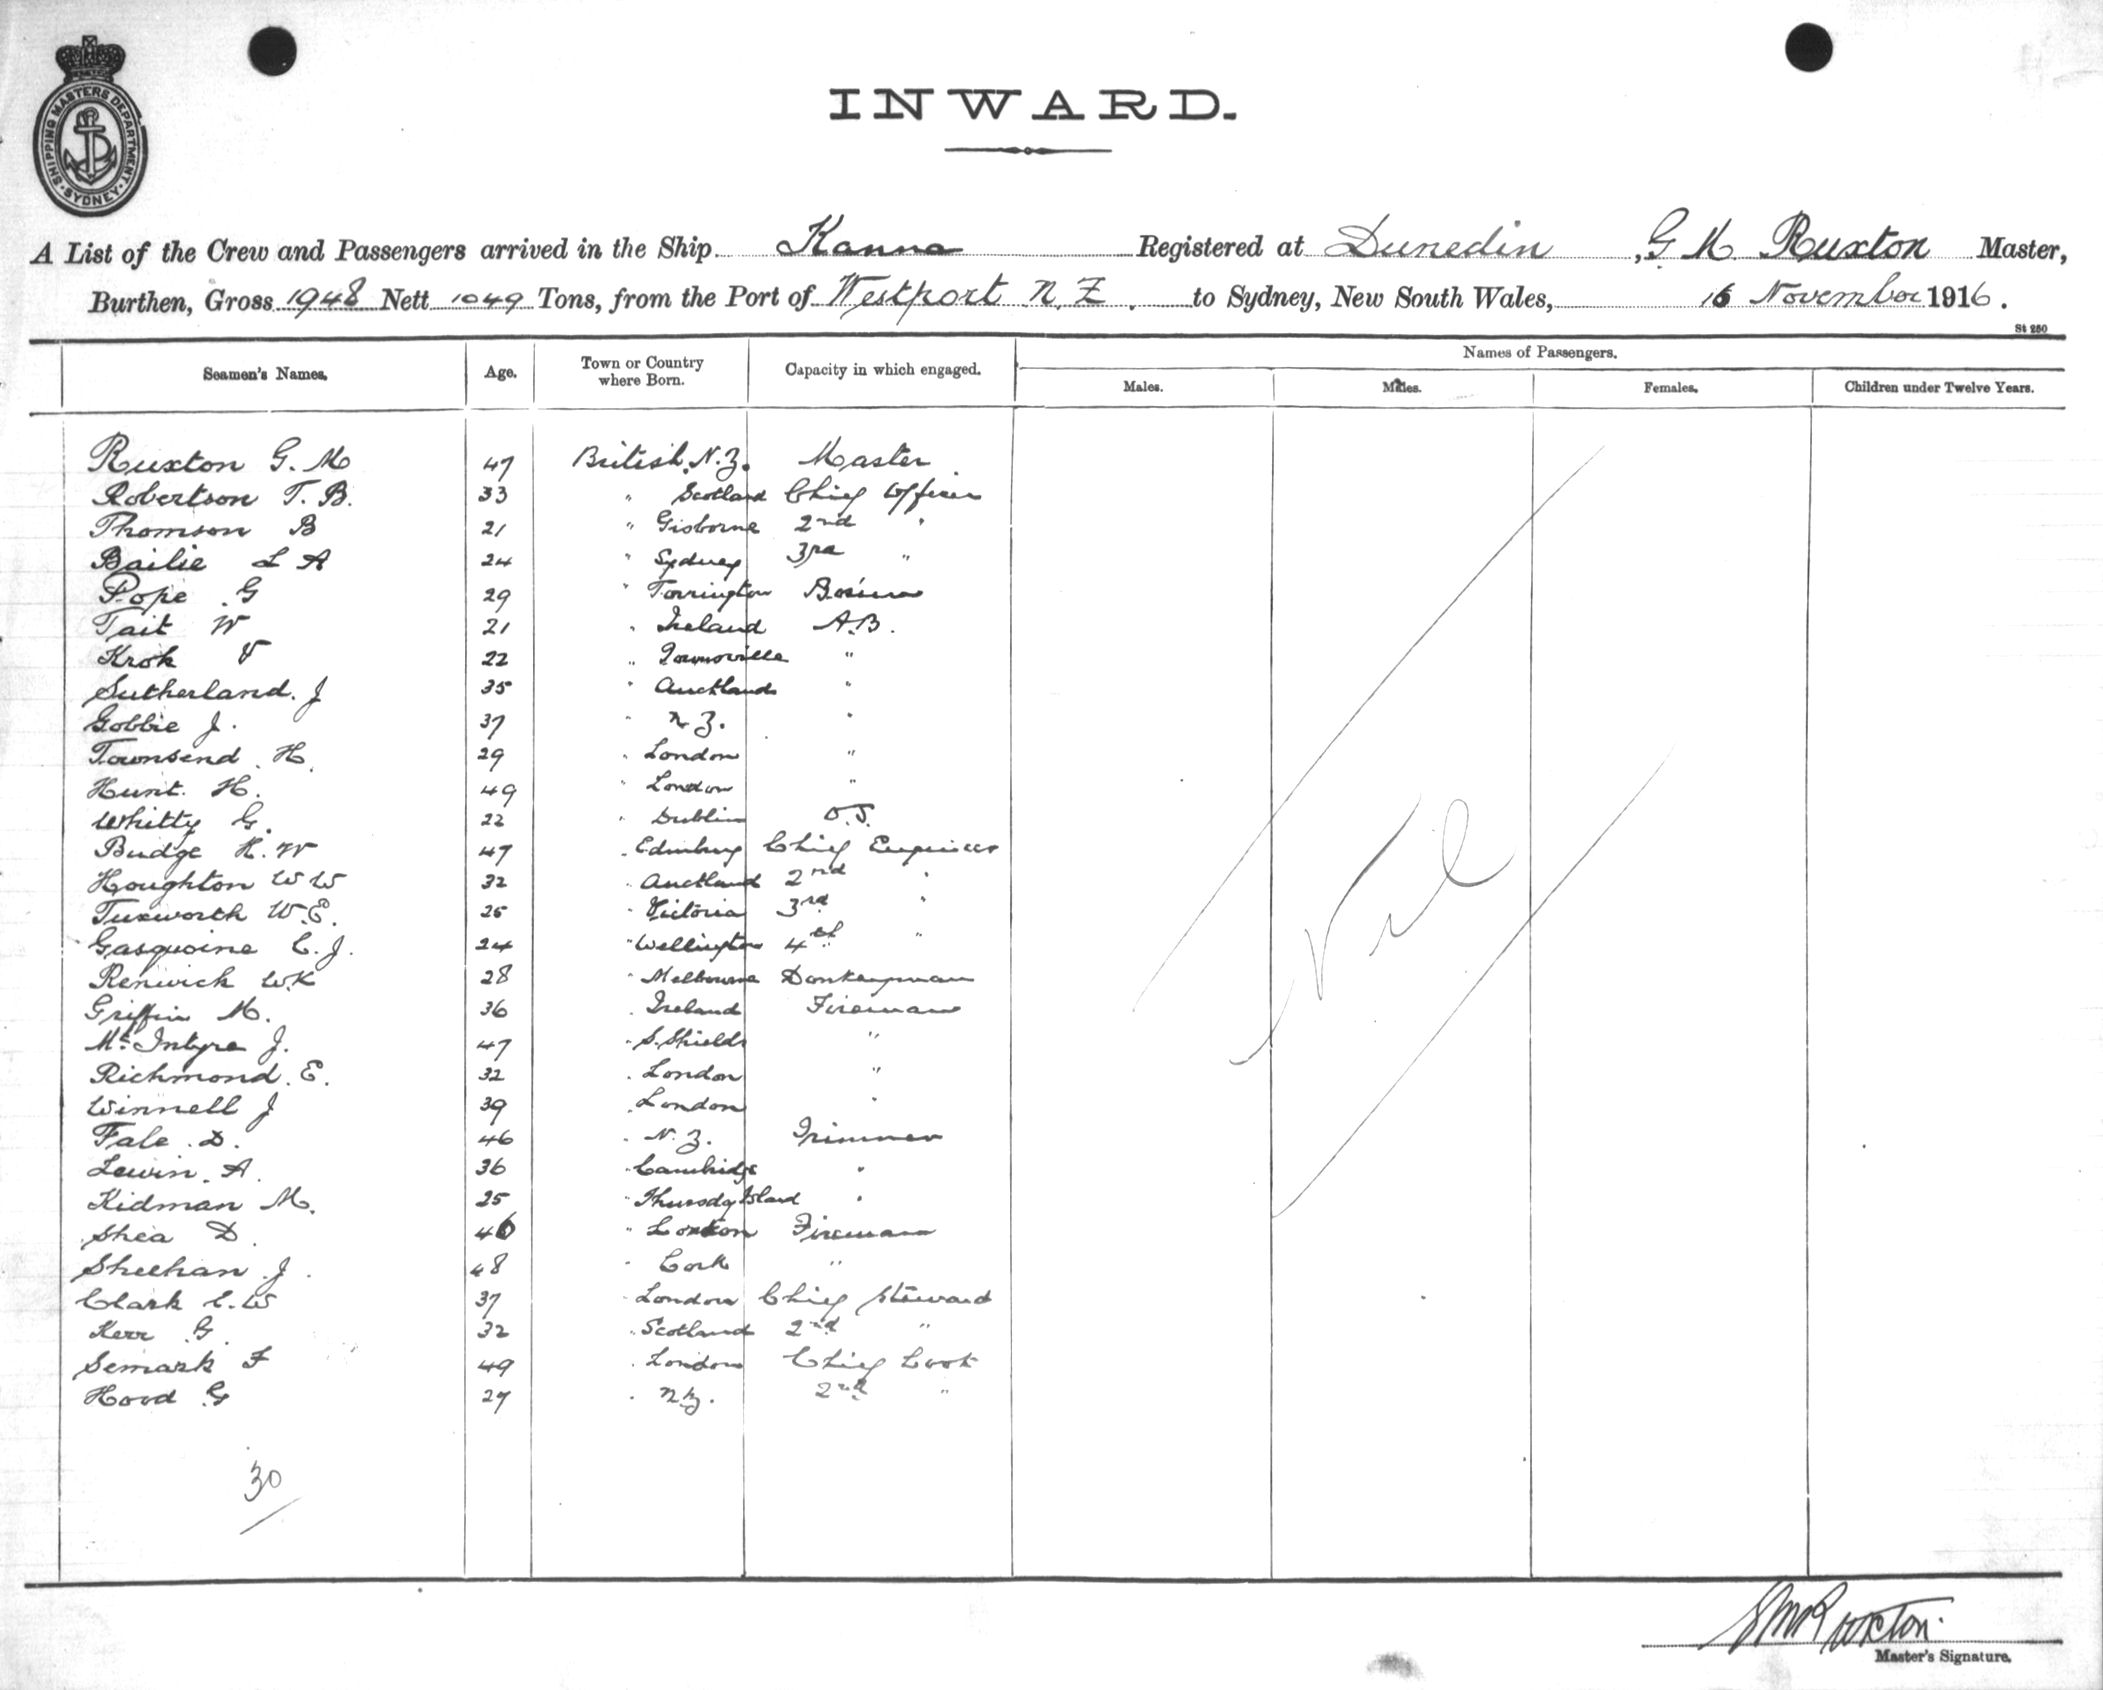 SHIPPING MASTERS DEPARTMENT · SYDNEY ·
INWARD.
A List of the Crew and Passengers arrived in the Ship Kanna Registered at Dunedin, G. M Ruxton Master,
Burthen, Gross 1948 Nett 1049 Tons, from the Port of Westport N.Z. to Sydney, New South Wales, 16 November 1916.
St 250
Seamen's Names. Age. Town or Country where Born. Capacity in which engaged. Names of Passengers.
Males. Males. Females. Children under Twelve Years.
Ruxton G. M 47 British N.Z. Master
Robertson T. B. 33 " Scotland Chief Officer
Thomson B 21 " Gisborne 2nd "
Bailie L A 24 " Sydney 3rd "
Pope G 29 " Torrington Bosun
Tait W 21 " Ireland A.B.
Krok V 22 " "
Sutherland. J 35 " Auckland "
Gobbie J. 37 " N Z. "
Townsend. H. 29 " London "
Hunt. H. 49 " London "
Whitty G. 22 " Dublin O.S.
Budge H. W 47 " Edinburg Chief Engineer
Houghton W W 32 " Auckland 2nd "
Tuxworth W. E. 25 " Victoria 3rd "
Gasquoine C. J. 24 " Wellington 4th "
Renwick W. K 28 " Melbourne Donkeyman
Griffin M. 36 " Ireland Fireman
McIntyre J. 47 " S. Shields "
Richmond. E. 32 " London "
Winnell J 39 " London "
Fale. D. 46 " N. Z. Trimmer
Lewin. A. 36 " Cambridge "
Kidman M. 25 " Thursdy Island "
Shea D. 46 " London Fireman
Sheehan. J. 48 " Cork "
Clark C. W 37 " London Chief Steward
Kerr G. 32 " Scotland 2nd "
Semark F 49 " London Chief Cook
Hood G 27 " N Z. 2nd "
Nil
30
G M Ruxton.
Master's Signature.